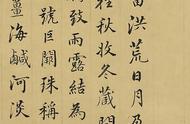 宙洪荒日月盈
往秋收冬藏閏
騰致雨露結為
號巨闕珠稱
薑海鹹河淡